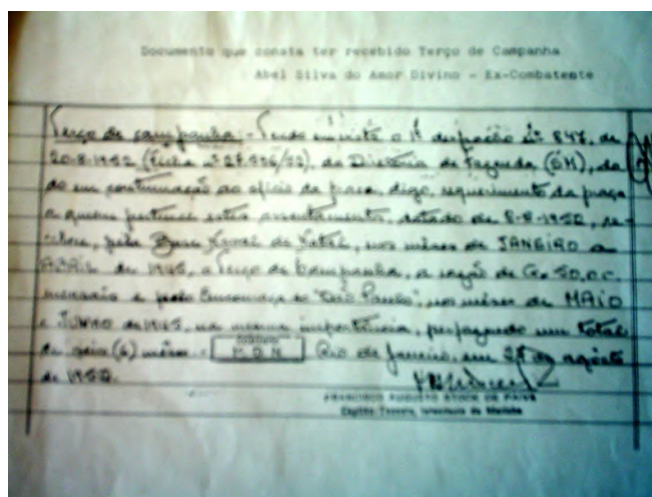 Documento que consta ter recebido Terço de Campanha
Abel Silva do Amor Divino - Ex-Combatente
Terço de campanha:- Tendo em vista o despacho nº 847, de
20-8-1952 (ficha nº /52), da Diretoria de Fazenda (GM), da
do em continuação ao ofício da praça, digo, requerimento da praça
a quem pertence estes assentamentos, datado de 8-8-1952, re-
cebeu, pela Base Naval de Natal, nos mêses de JANEIRO a
ABRIL de 1945, o Terço de Campanha, a razão de Cr. 50,00
mensais e pelo Encouraçado "São Paulo", nos mêses de MAIO
e JUNHO de 1945, na mesma importância, perfazendo um total
de seis (6) mêses.- M.D.N. Rio de Janeiro, em de agosto
de 1952.
FRANCISCO AUGUSTO DE PAIVA
Capitão-Tenente, Intendente da Marinha